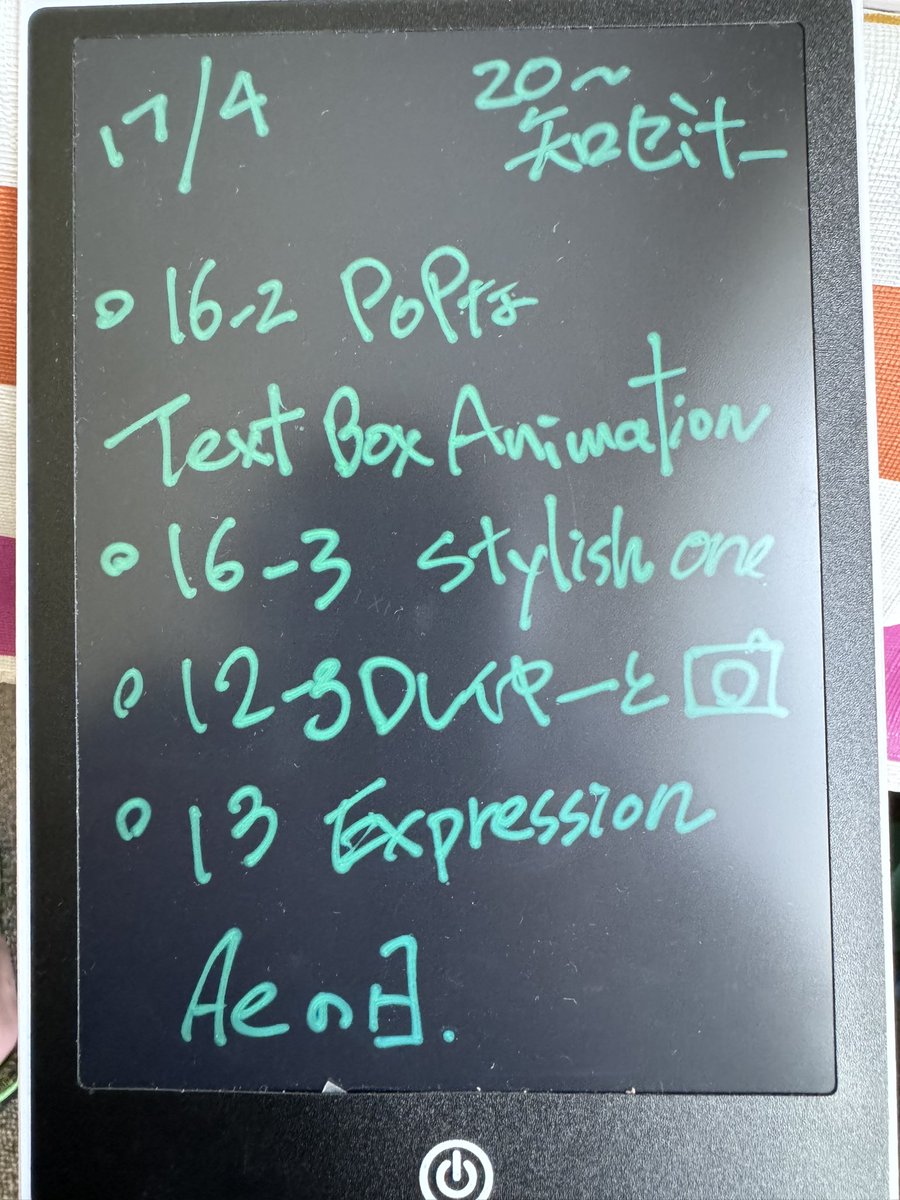 17/4
20〜
知セミナー
16-2 PoPな
Text Box Animation
16-3 stylish one
12-3Dレイヤーと
13 Expression
Aeの日.